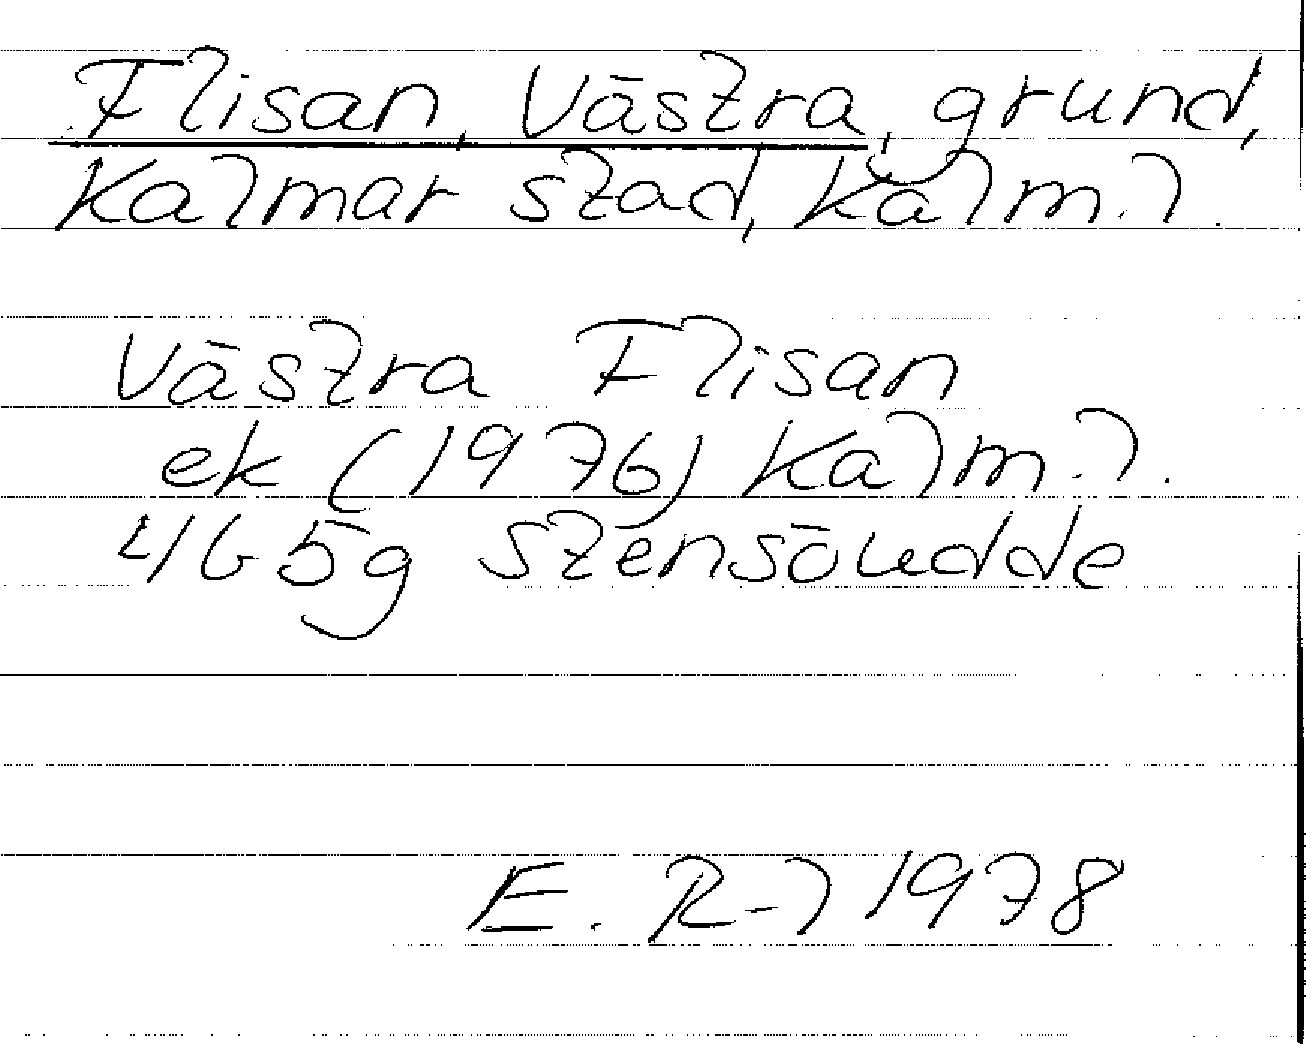 Flisan, Västra, grund,
Kalmar stad, Kalm. l.
Västra Flisan
ek (1976) Kalm. l.
4G 5g Stensöudde
E. R-l 1978